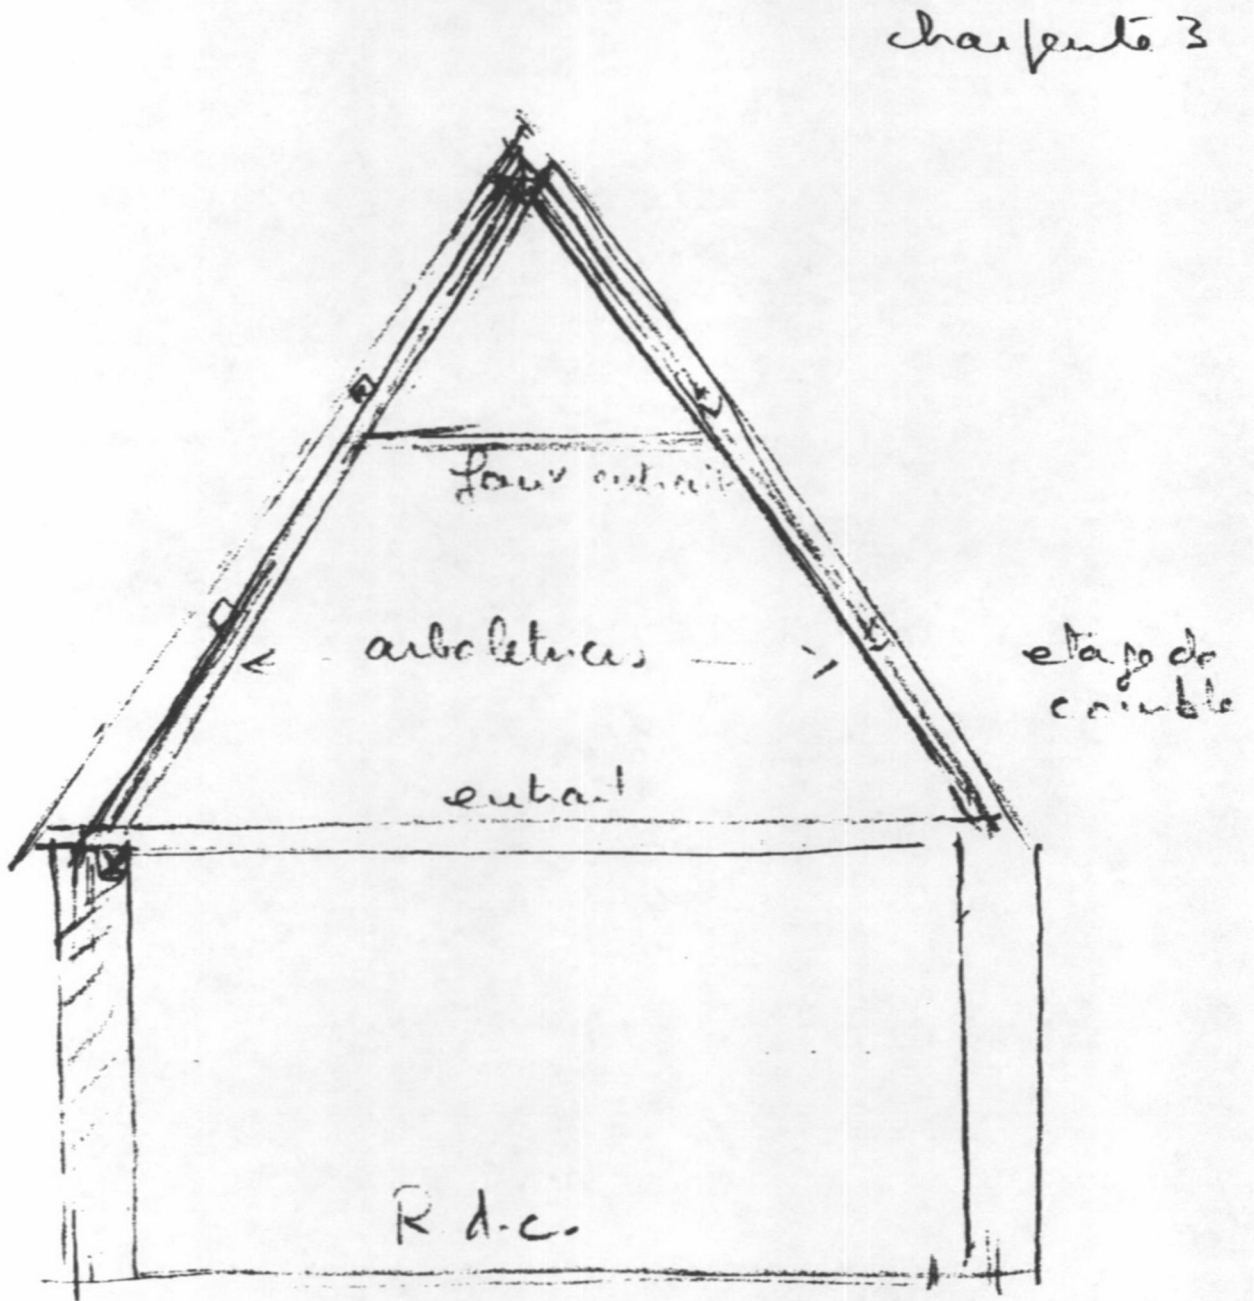 charpente 3
faux entrait
arbaletriers
etage de
comble
entrait
R.d.c.